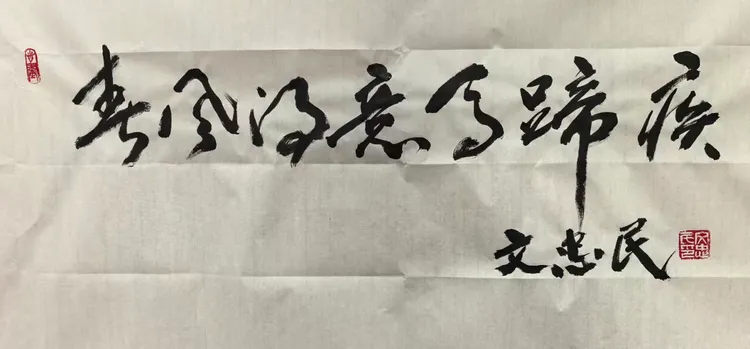 春风得意马蹄疾
文忠民